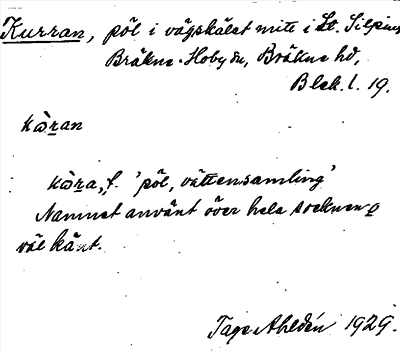 Kurran, pöl i vägskälet mitt i Lt. Silpinge
Bräkne-Hoby sn, Bräkne hd,
Blek. l. 19.
kɷ̀ran
kɷ̀ra, f. 'pöl, vattensamling'
Namnet använt över hela socknen o
väl känt.
Tage Ahldén 1929.